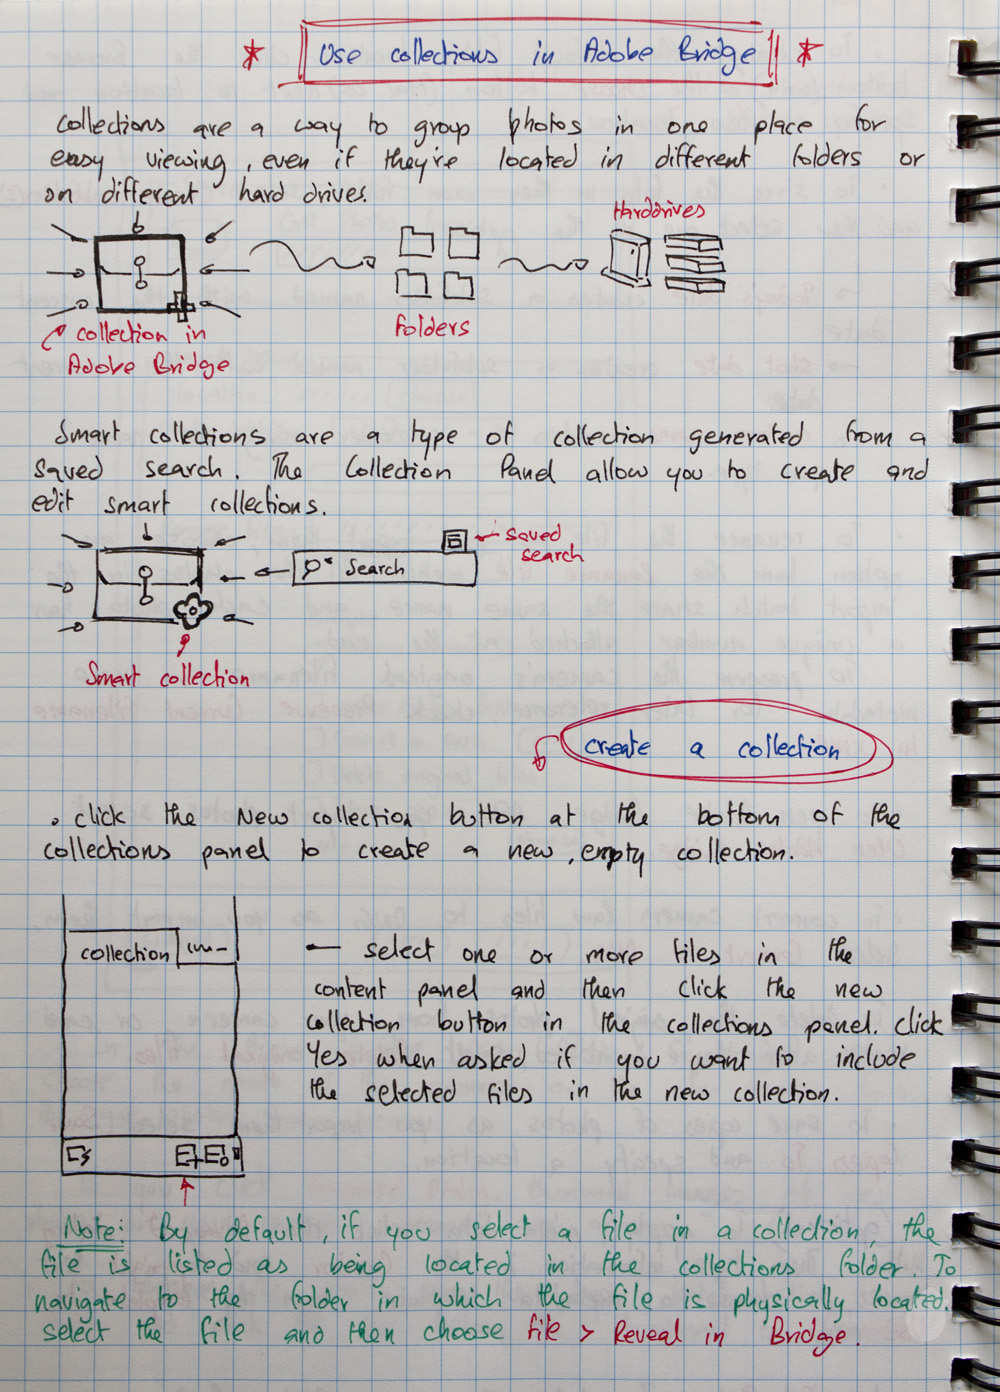 * Use collections in Adobe Bridge *
Collections are a way to group photos in one place for
easy viewing, even if they're located in different folders or
on different hard drives.
Harddrives
Folders
collection in
Adobe Bridge
Smart collections are a type of collection generated from a
saved search. The Collection Panel allow you to create and
edit smart collections.
saved
search
Search
Smart collection
create a collection
. click the New collection button at the bottom of the
collections panel to create a new, empty collection.
collection
— select one or more files in the
content panel and then click the new
collection button in the collections panel. click
Yes when asked if you want to include
the selected files in the new collection.
Note: By default, if you select a file in a collection, the
file is listed as being located in the collections folder. To
navigate to the folder in which the file is physically located,
select the file and then choose file > Reveal in Bridge.